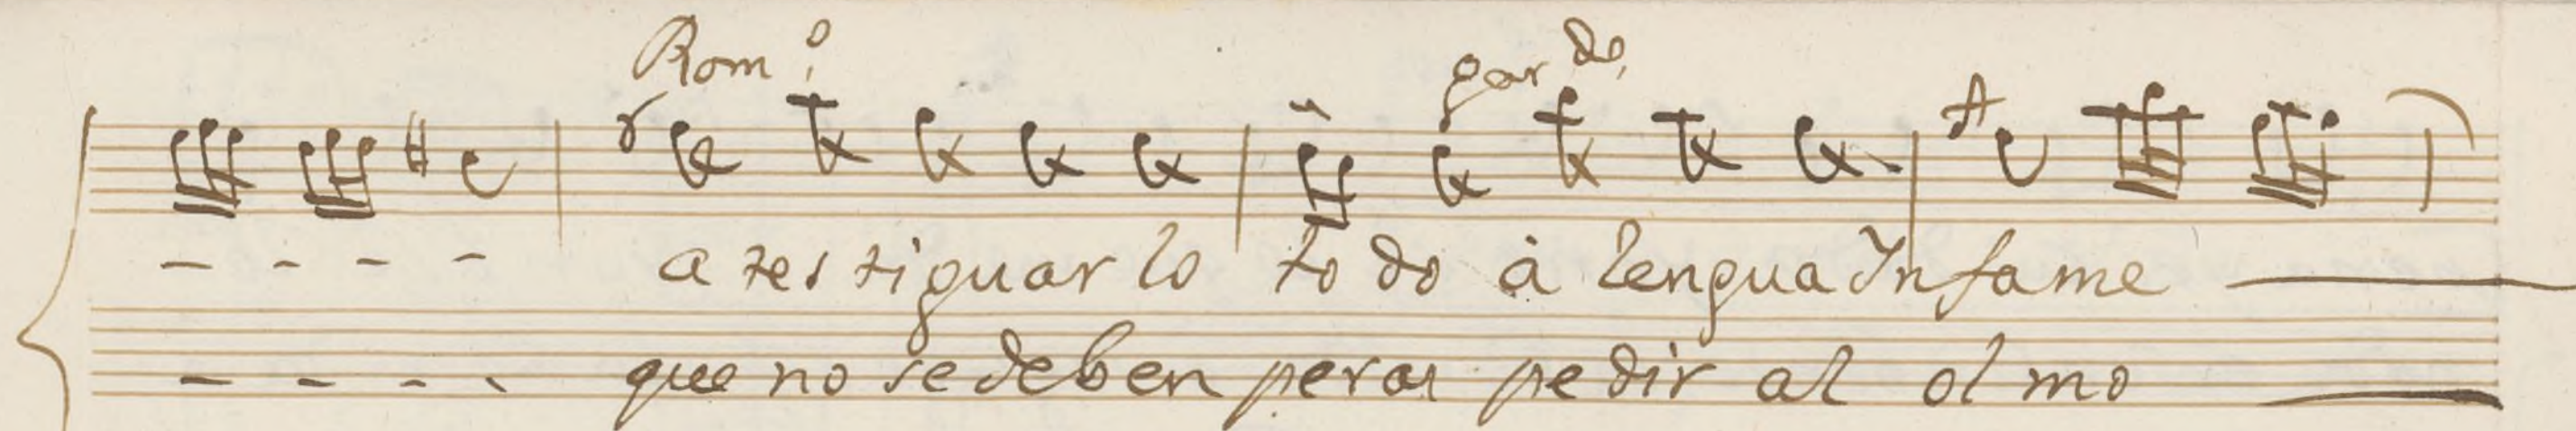 Rom.º gar.do
- - - - a tes tiguar lo to do à lengua Infame
- - - - que no se deben peras pedir al olmo